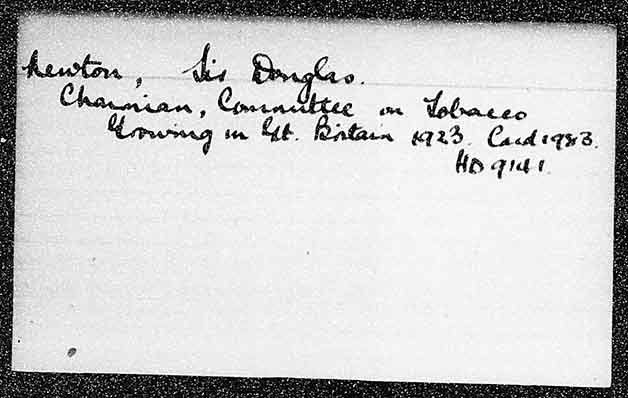 Newton, Sir Douglas.
Chairman, Committee on Tobacco
Growing in Gt. Britain 1923. Cmd 1983.
HD 9141.